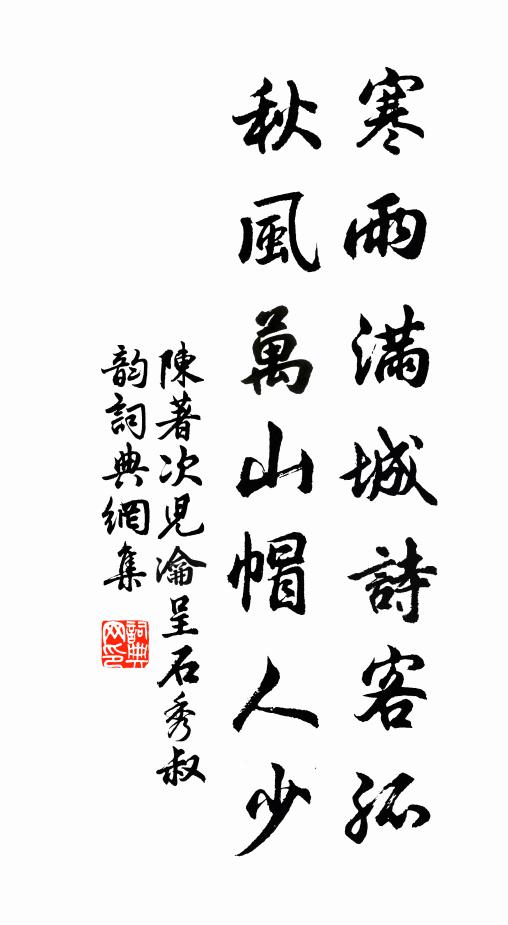 寒雨滿城詩客孤
秋風萬山帽人少
陳著次兒瀹呈石秀叔
韵詞典網集
詞典網印